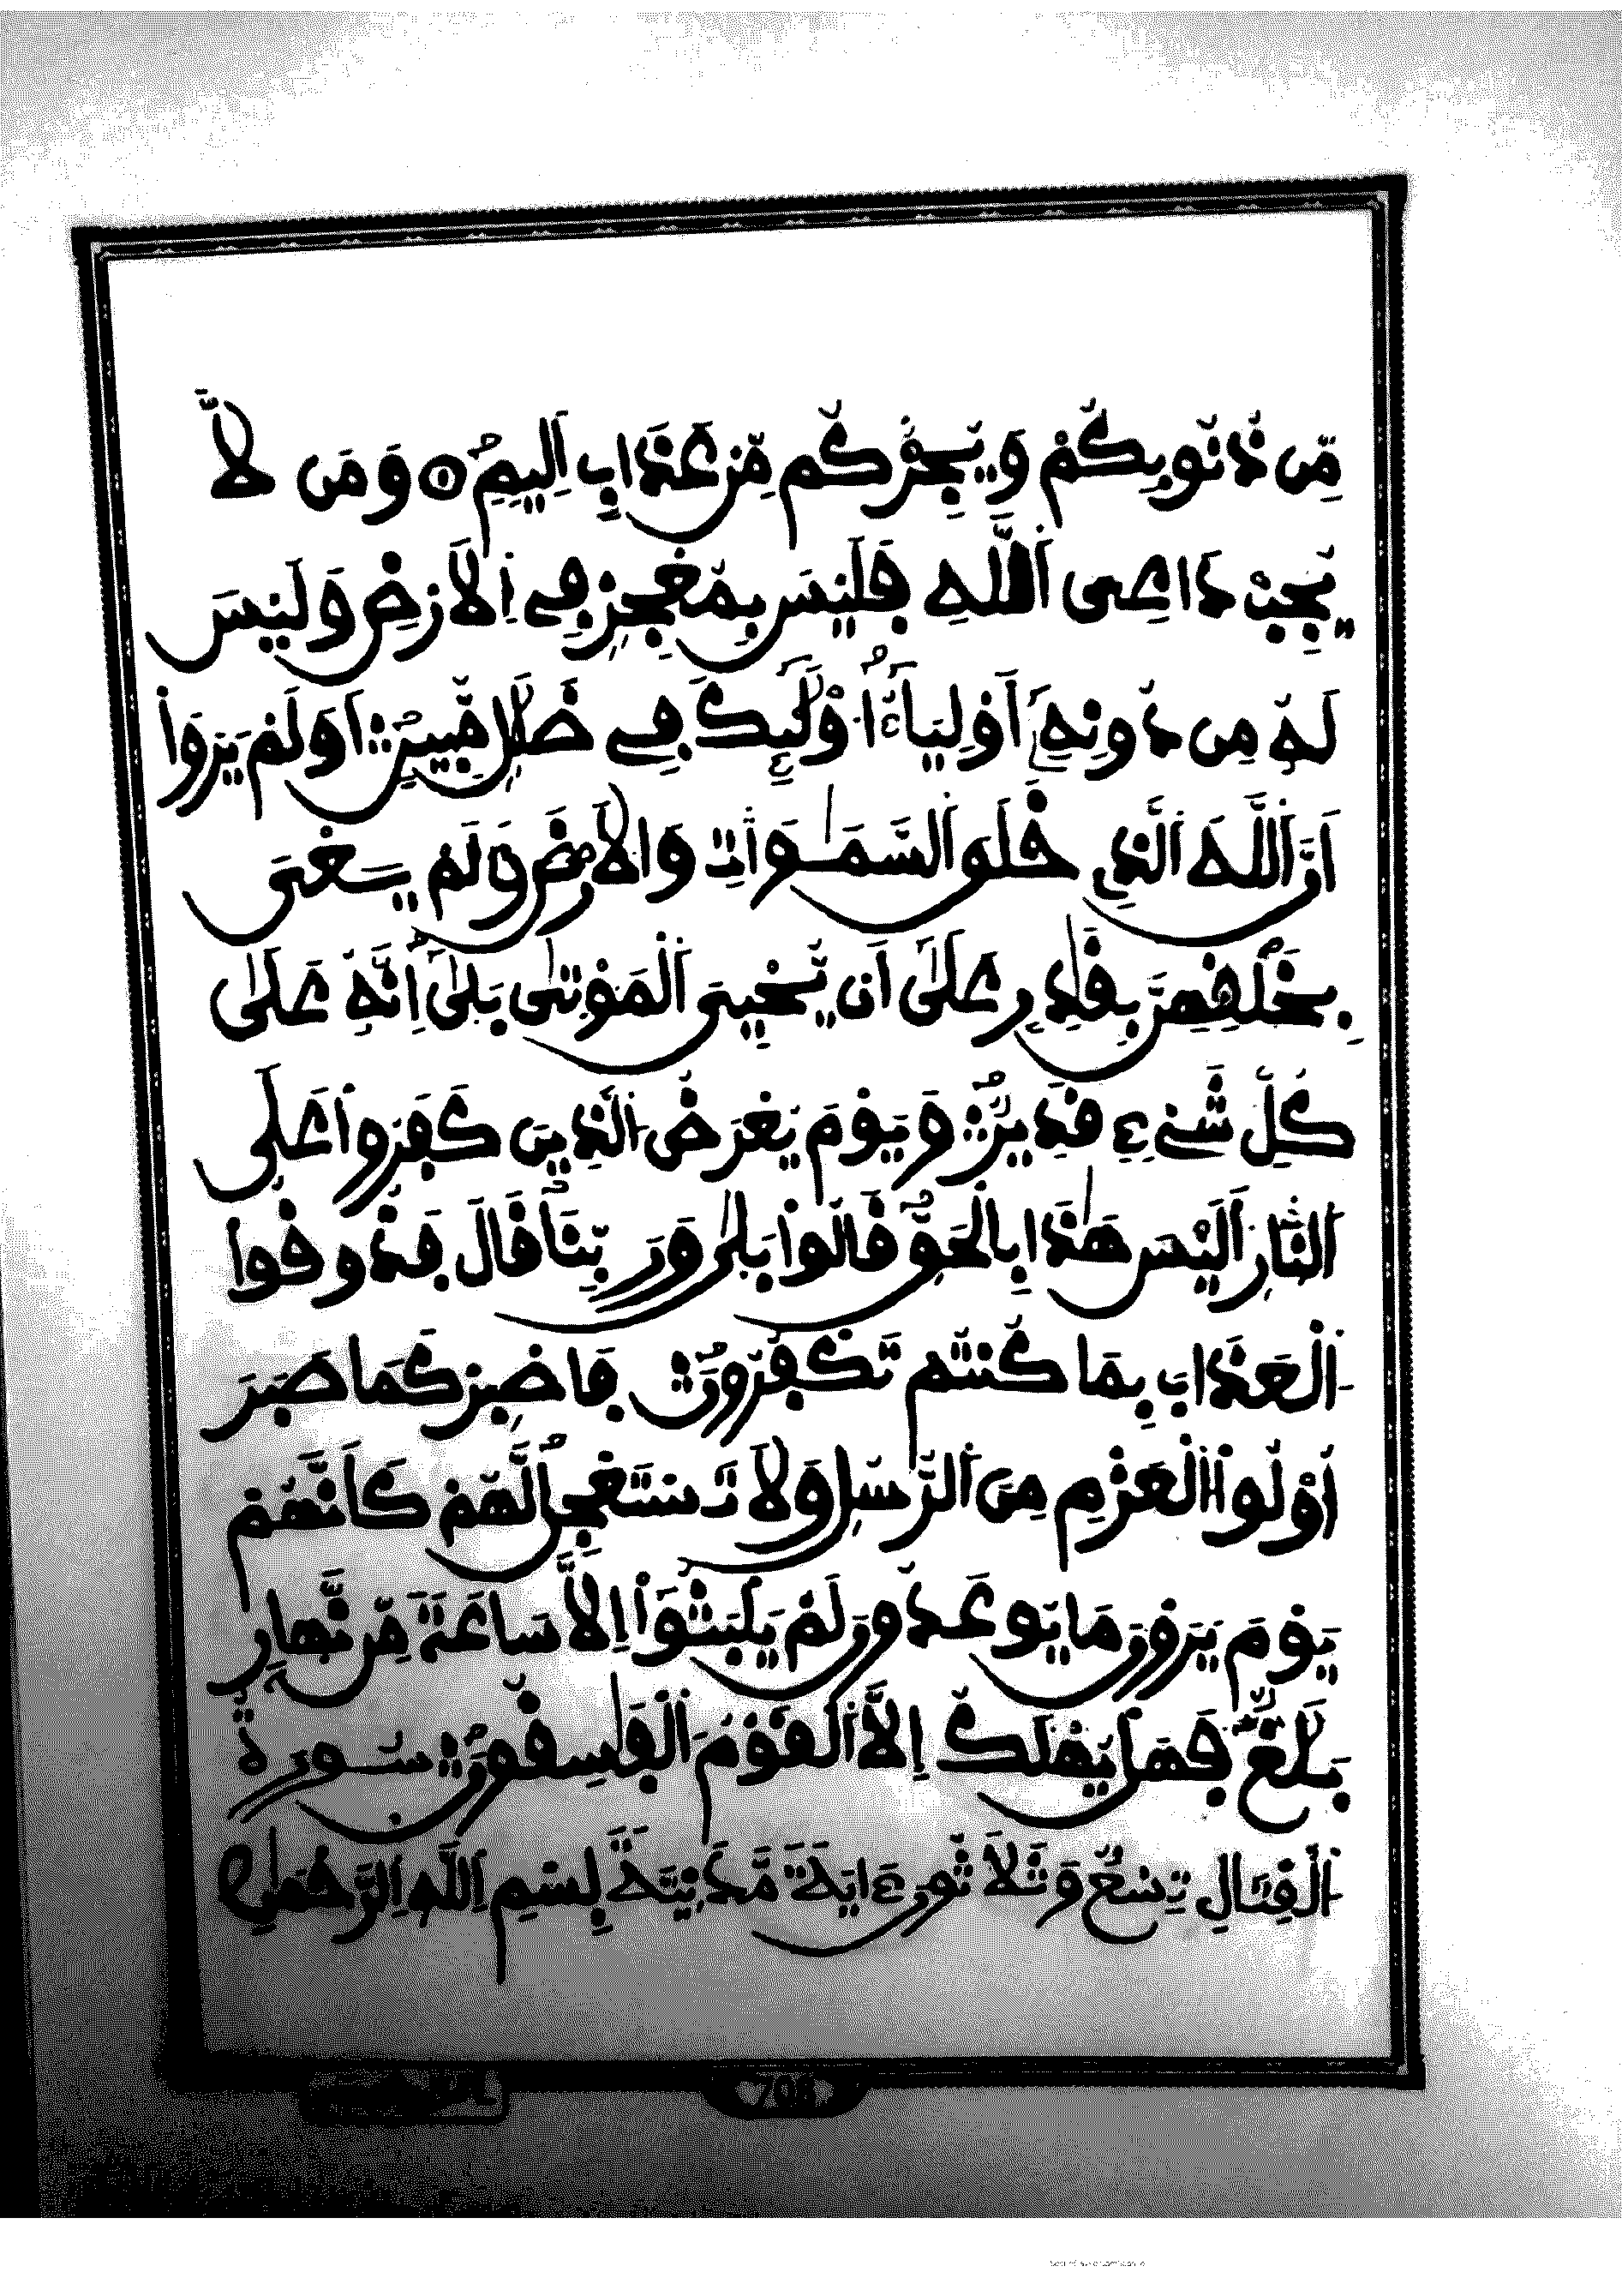 مِّن ذُنُوبِكُمْ وَيُجِرْكُم مِّنْ عَذَابٍ اَلِيمٍ وَمَن لَّا
يُجِبْ دَاعِيَ اَللَّهِ فَلَيْسَ بِمُعْجِزٍ فِي اِلَارْضِ وَلَيْسَ
لَهُ مِن دُونِهِ أَوْلِيَاءُ اُوْلَٰئِكَ فِي ضَلَٰلٍ مُّبِينٍ اَوَلَمْ يَرَوْا
اَنَّ اَللَّهَ اَلَّذِي خَلَقَ اَلسَّمَٰوَاتِ وَالَارْضَ وَلَمْ يَعْيَ
بِخَلْقِهِنَّ بِقَٰدِرٍ عَلَىٰ أَنْ يُّحْيِيَ اَلْمَوْتَىٰ بَلَىٰ إِنَّهُ عَلَىٰ
كُلِّ شَيْءٍ قَدِيرٌ وَيَوْمَ يُعْرَضُ اَلَّذِينَ كَفَرُوا عَلَى
اَلنَّارِ أَلَيْسَ هَٰذَا بِالْحَقِّ قَالُوا بَلَىٰ وَرَبِّنَا قَالَ فَذُوقُوا
اَلْعَذَابَ بِمَا كُنتُمْ تَكْفُرُونَ فَاصْبِرْ كَمَا صَبَرَ
أُوْلُوا اَلْعَزْمِ مِنَ اَلرُّسُلِ وَلَا تَسْتَعْجِل لَّهُمْ كَأَنَّهُمْ
يَوْمَ يَرَوْنَ مَا يُوعَدُونَ لَمْ يَلْبَثُوا إِلَّا سَاعَةً مِّن نَّهَارٍ
بَلَٰغٌ فَهَلْ يُهْلَكُ إِلَّا اَلْقَوْمُ اَلْفَٰسِقُونَ سُورَةُ
اَلْقِتَالِ تِسْعٌ وَثَلَاثُونَ ءَايَةً مَّدَنِيَّةٌ بِسْمِ اِللَّهِ اِلرَّحْمَٰنِ
708